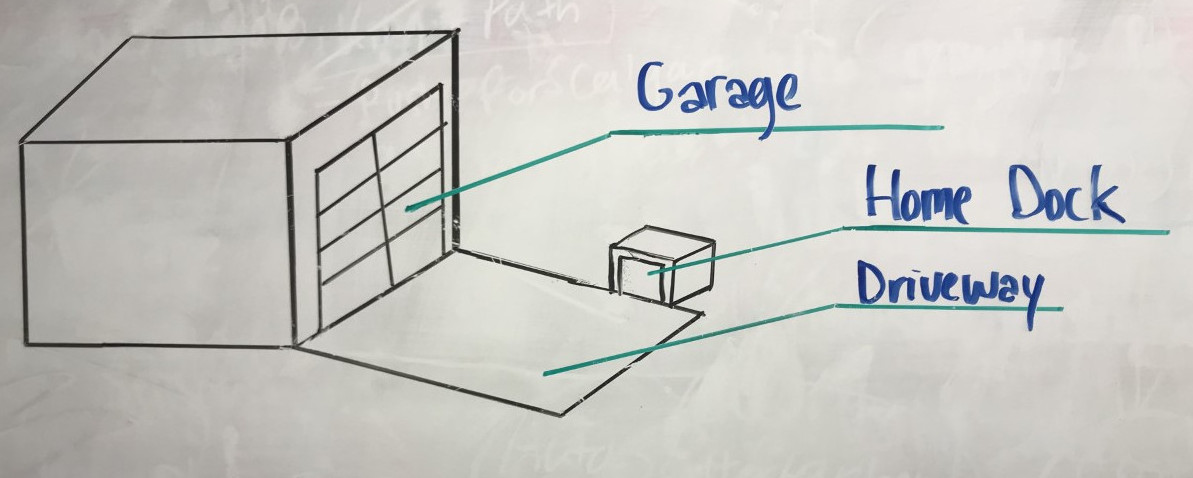 Path
Garage
Home Dock
Driveway